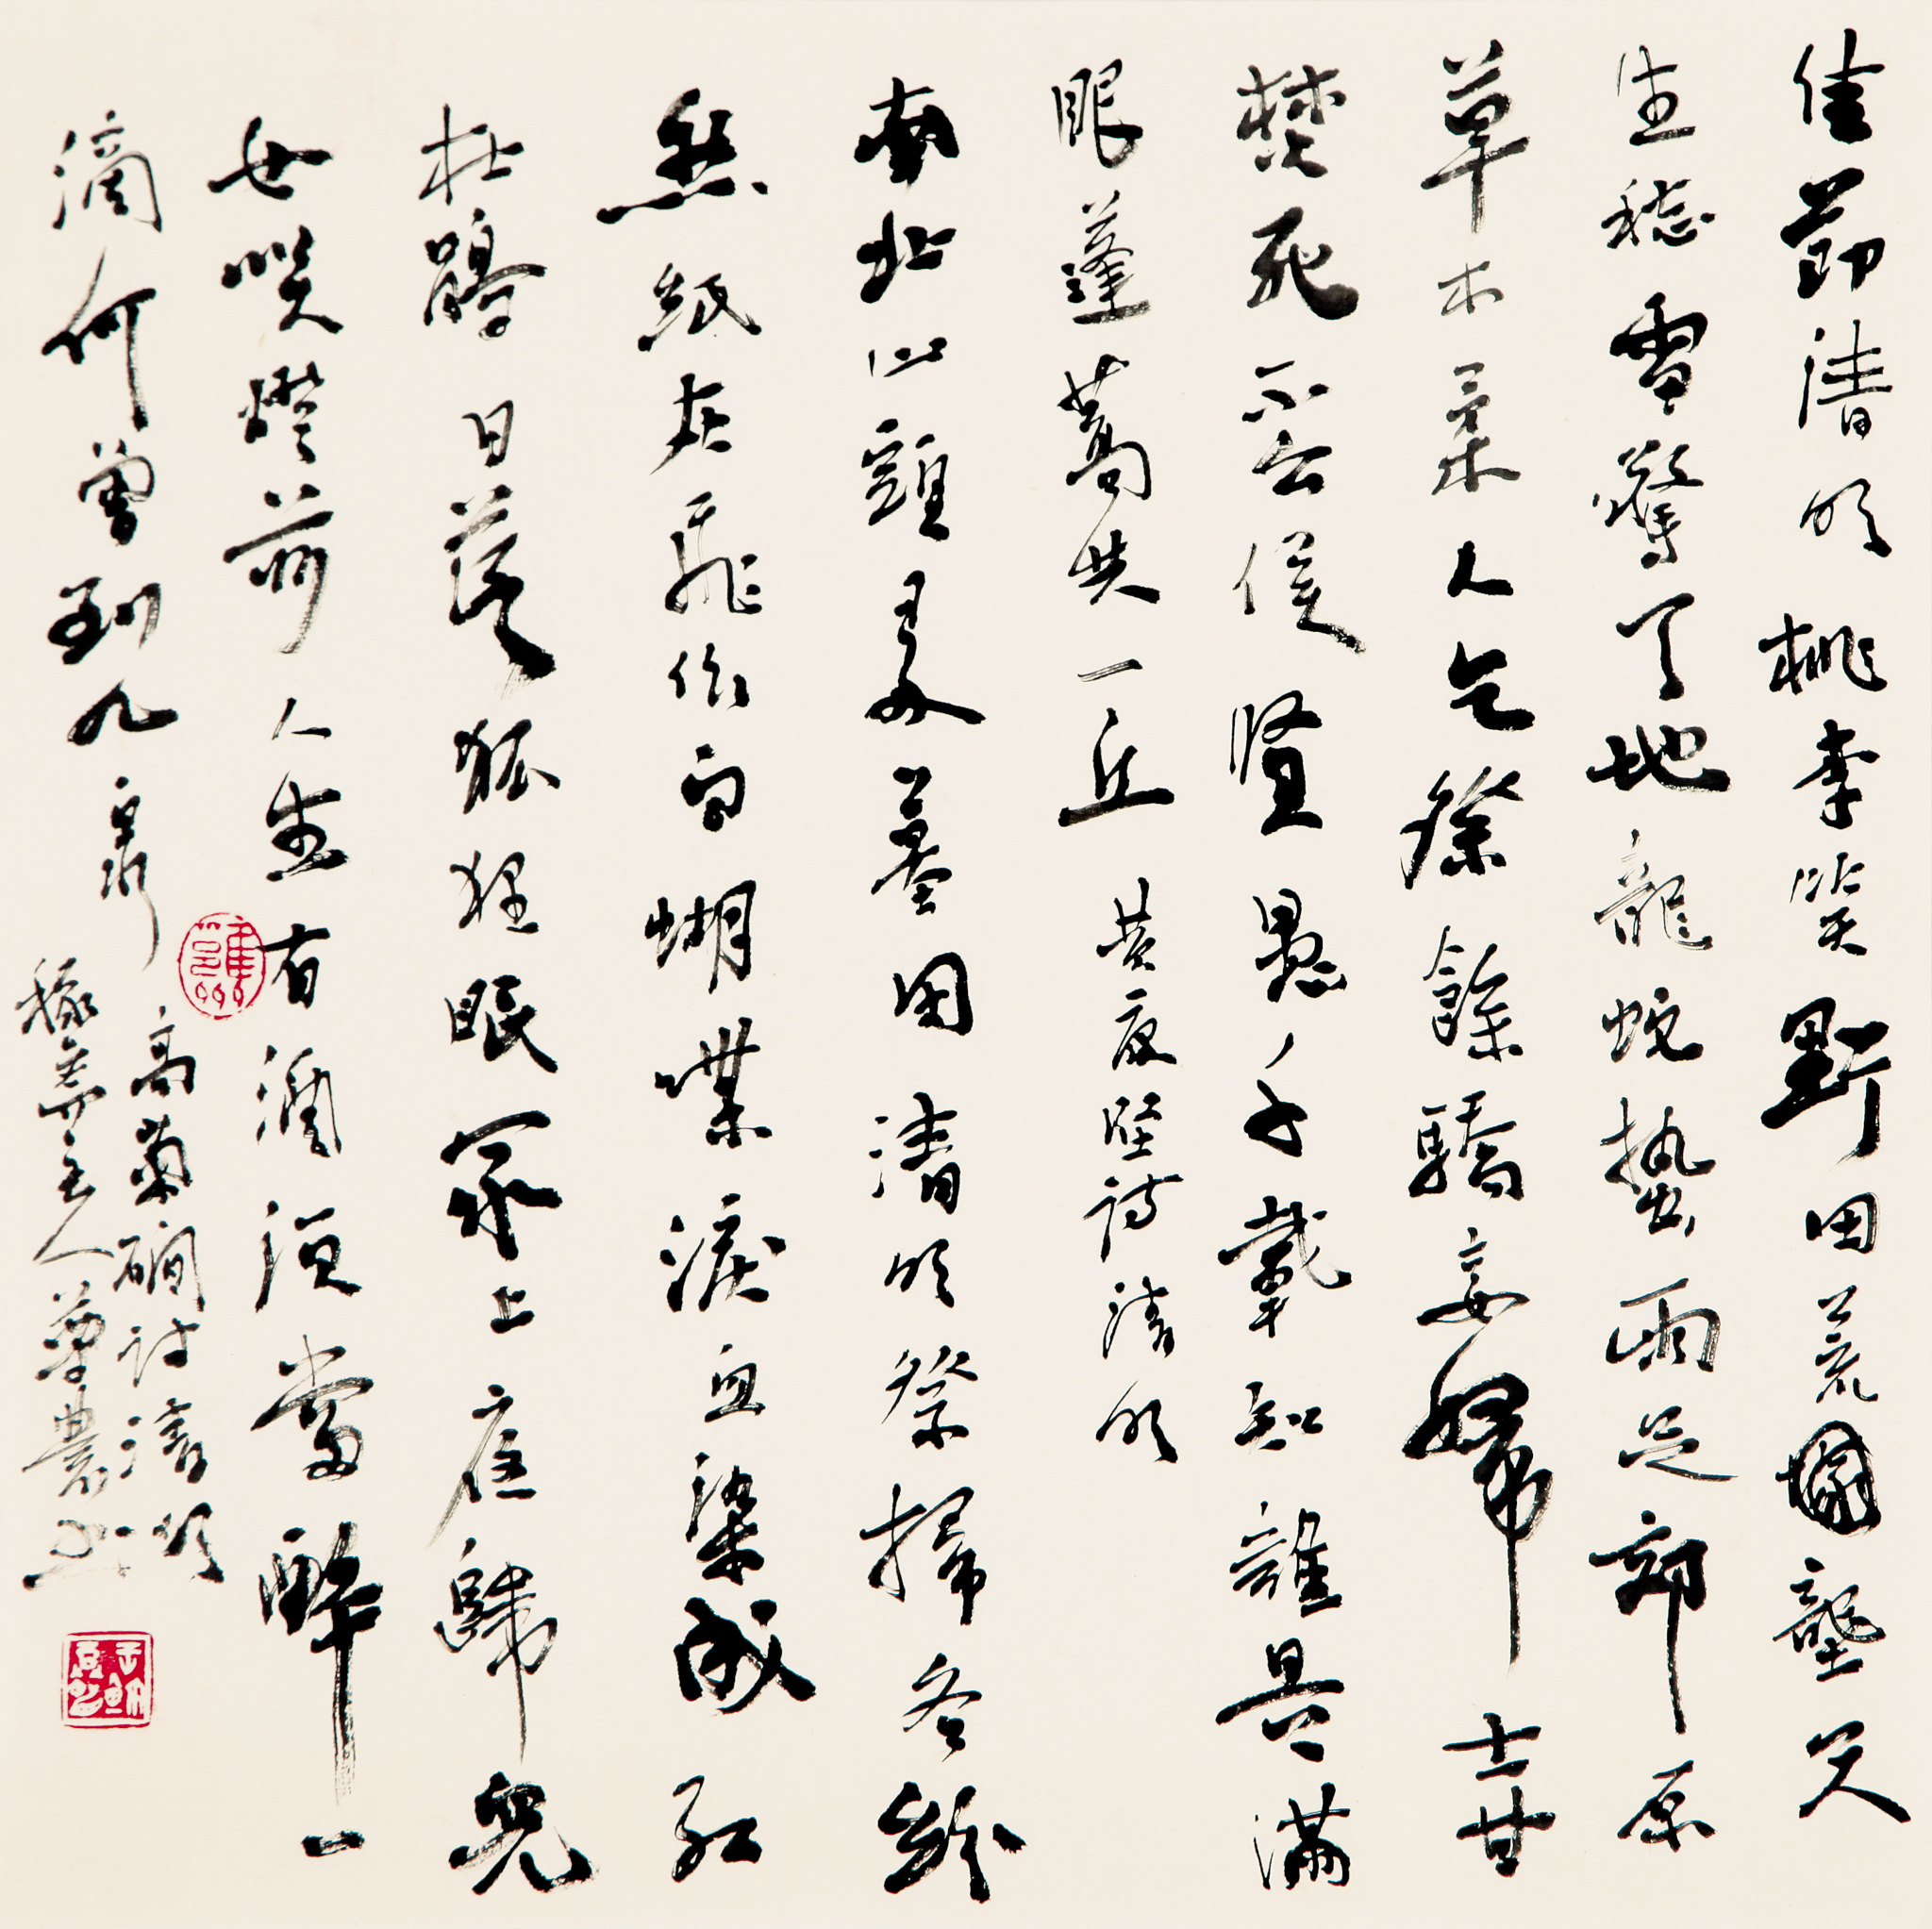 佳節清明桃李笑野田荒壟只
生愁雷驚天地龍蛇蟄雨足郊原
草木柔人乞祭餘驕妾婦士甘
焚死不公侯賢愚千載知誰是滿
眼蓬蒿共一丘黃庭堅詩清明
南北山頭多墓田清明祭掃各紛
然紙灰飛作白蝴蝶淚血染成紅
杜鵑日落狐狸眠冢上夜歸兒
女笑燈前人生有酒須當醉一
滴何曾到九泉
高菊磵詩清明
主人農書